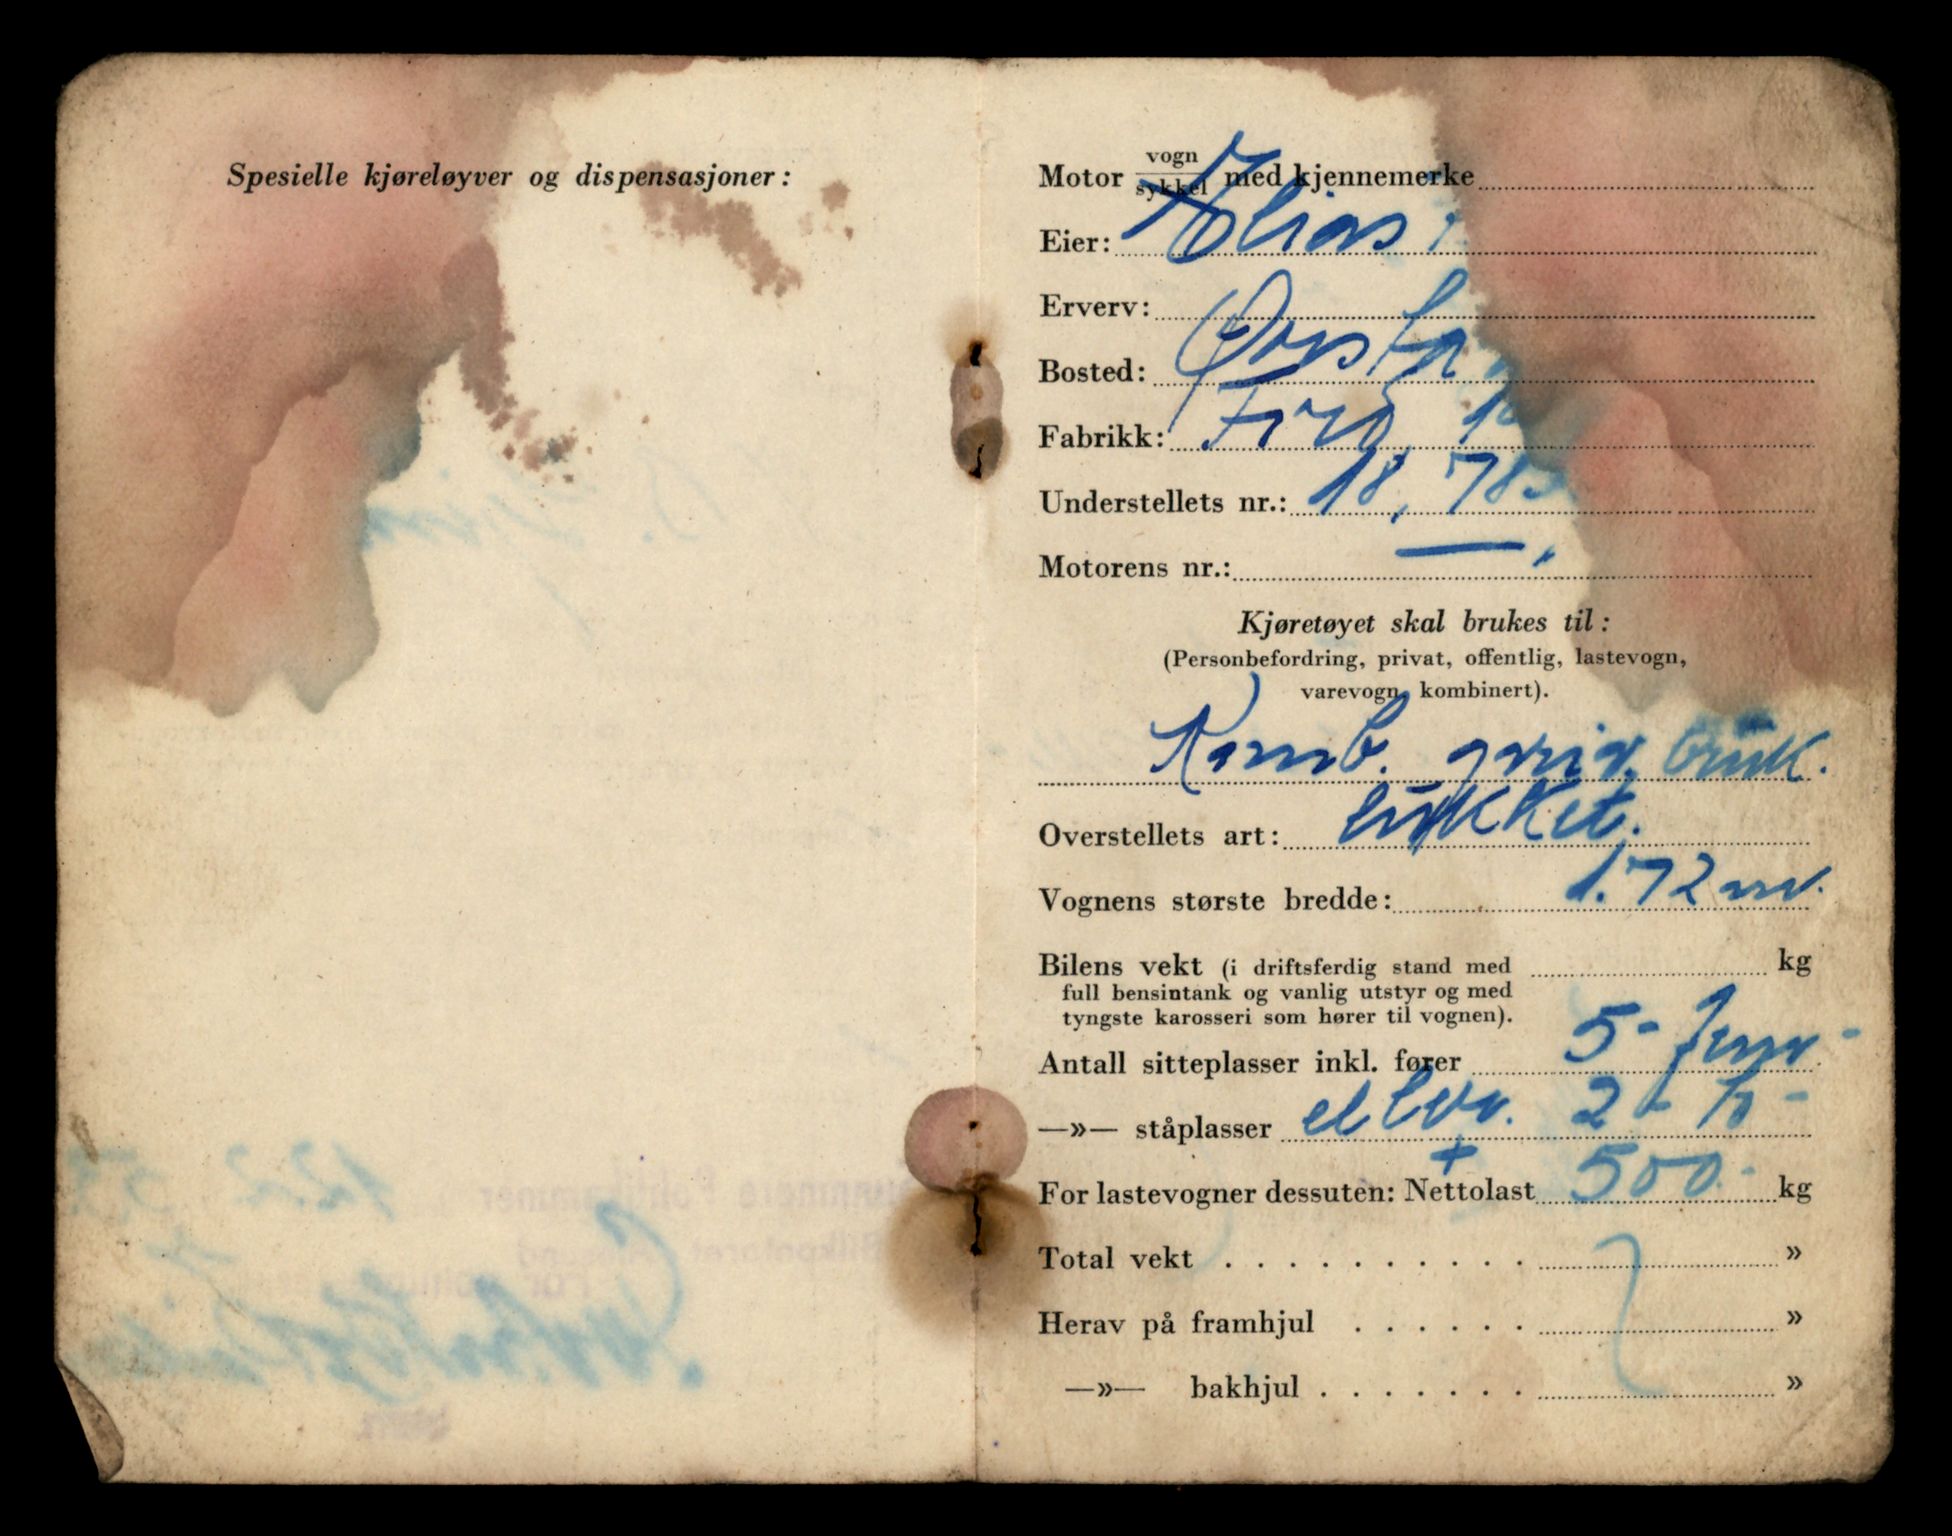 Spesielle kjøreløyver og dispensasjoner:
Motor vogn/sykkel med kjennemerke
Eier: Elias
Erverv:
Bosted: Ørsta
Fabrikk: Ford
Understellets nr.: 18, 785
Motorens nr.: —
Kjøretøyet skal brukes til:
(Personbefordring, privat, offentlig, lastevogn,
varevogn, kombinert).
Komb. priv. bruk.
Overstellets art: lukket.
Vognens største bredde: 1.72 m.
Bilens vekt (i driftsferdig stand med
full bensintank og vanlig utstyr og med
tyngste karosseri som hører til vognen). kg
Antall sitteplasser inkl. fører 5 - fem -
—»— ståplasser eller 2 - to -
+
For lastevogner dessuten: Nettolast 500 kg
Total vekt . . . . . . . . . . »
Herav på framhjul . . . . . . »
—»— bakhjul . . . . . . . »